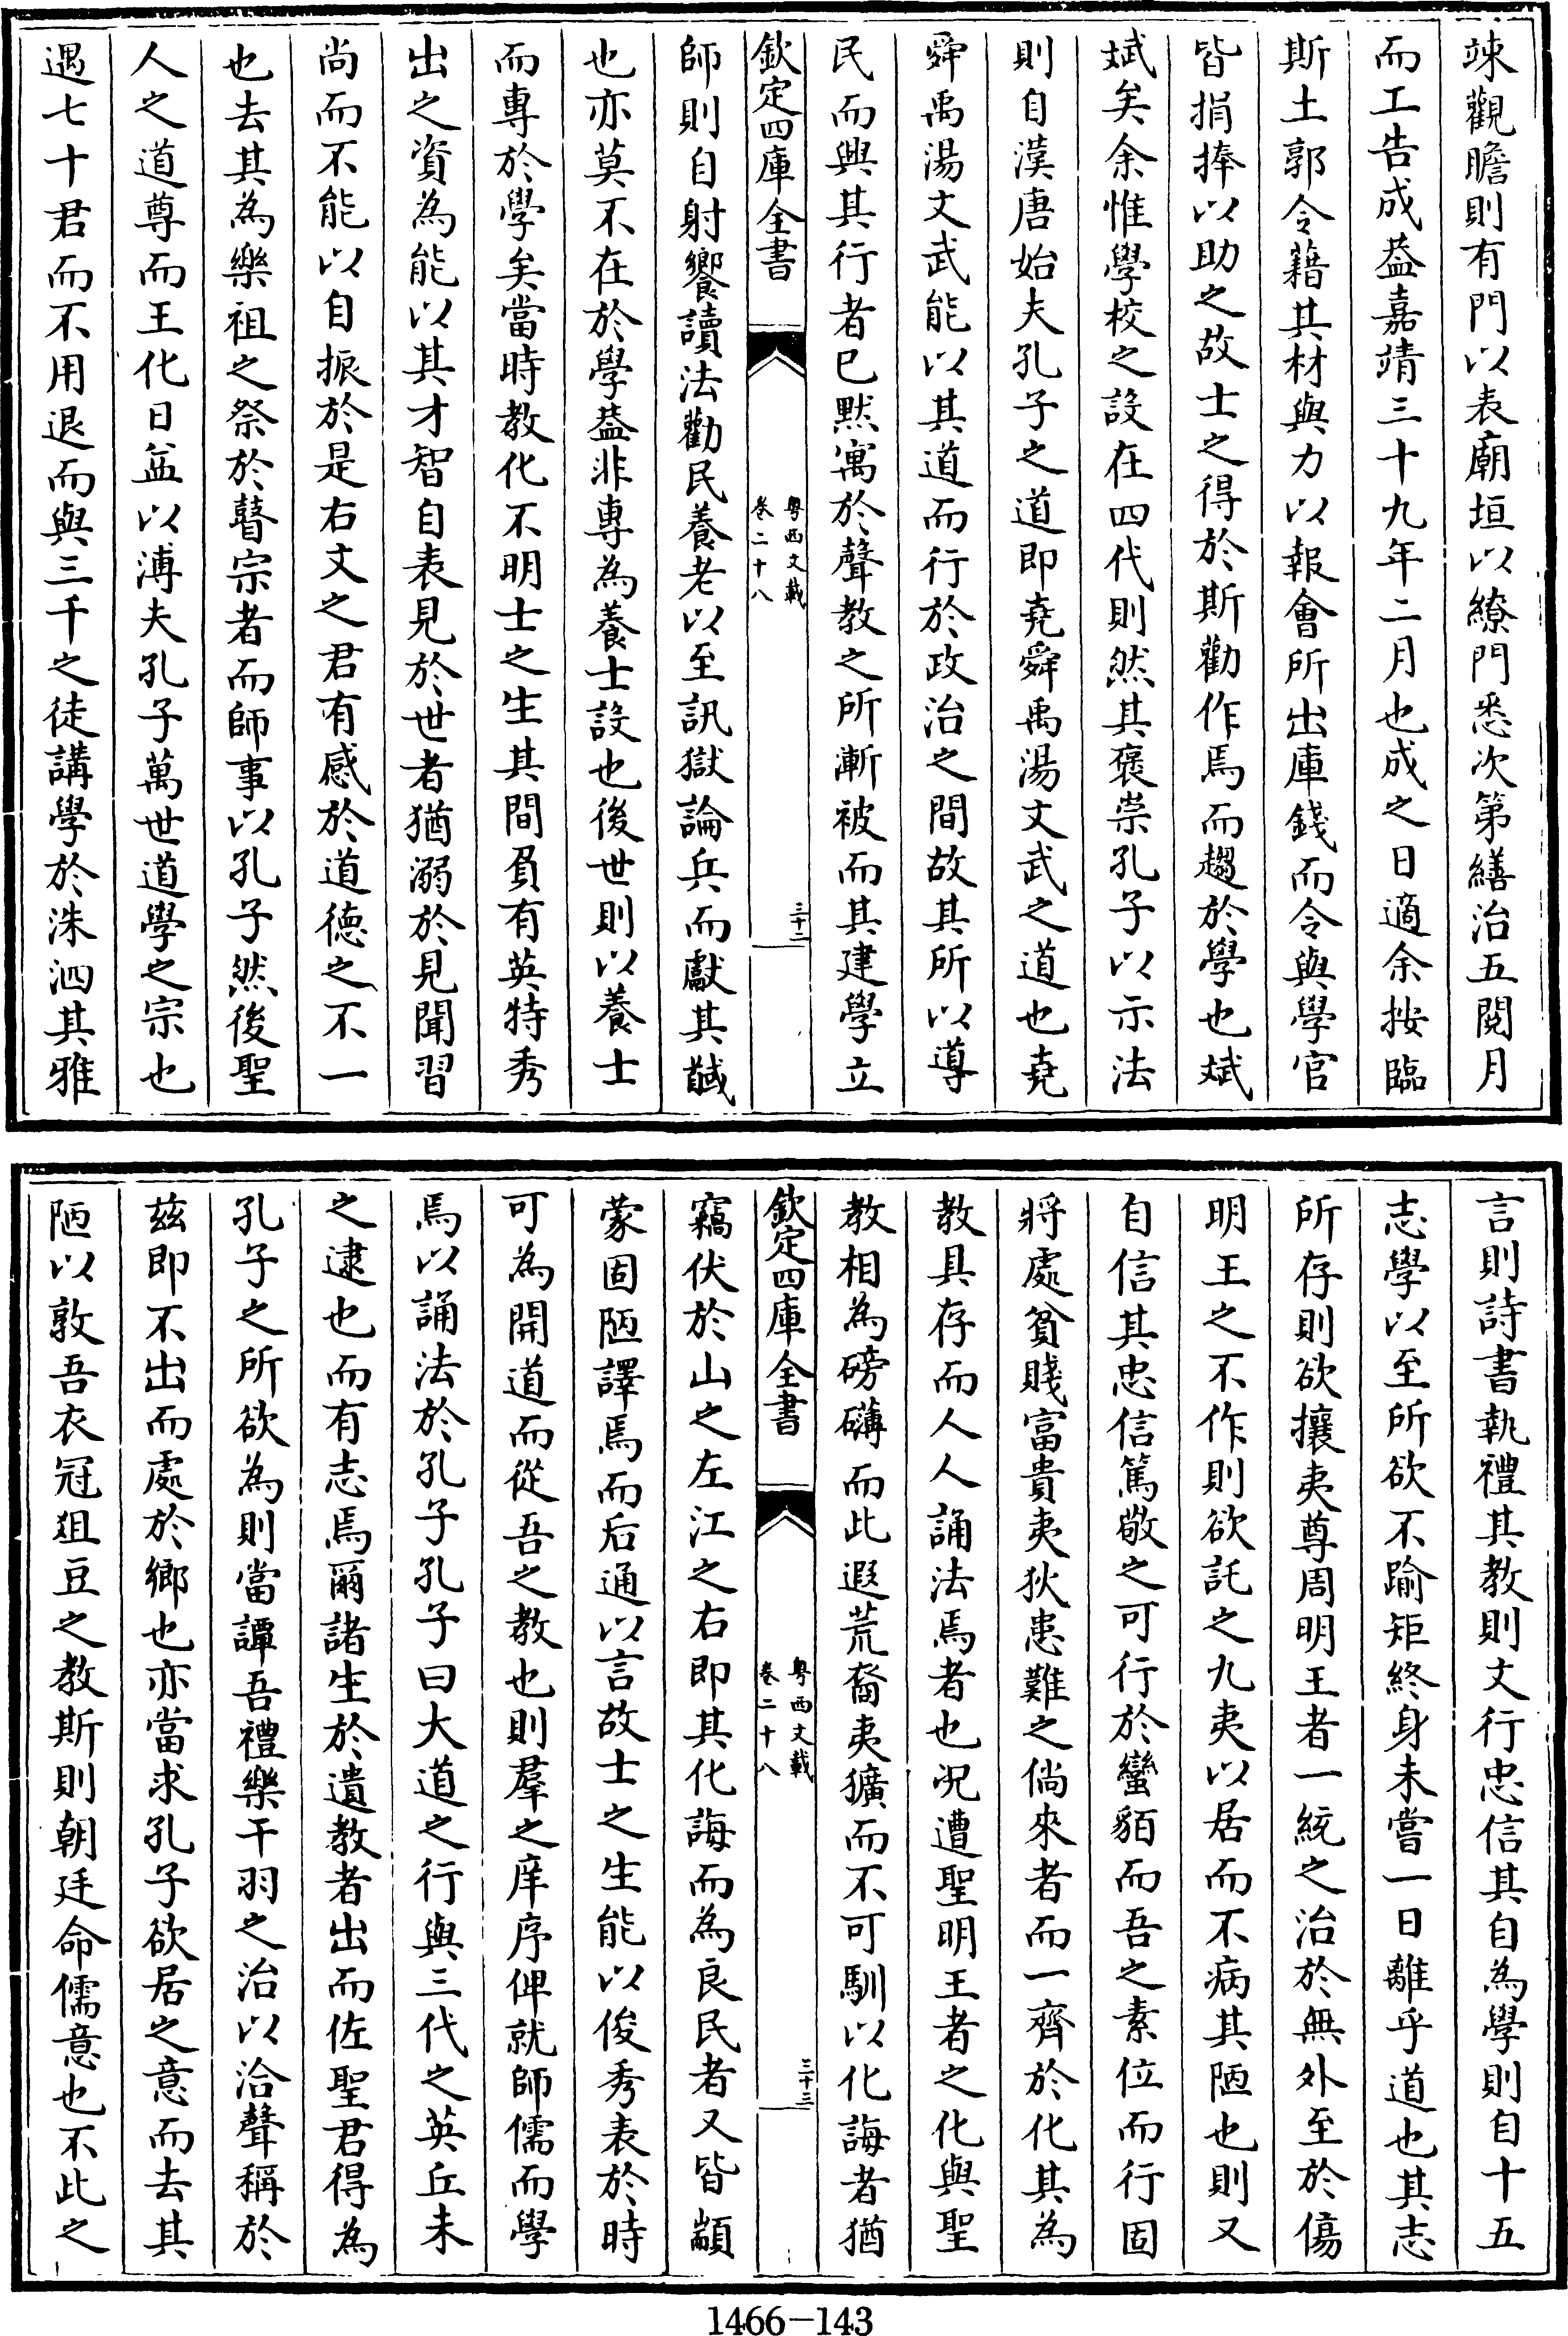 竦觀瞻則有門以表廟垣以繚門悉次第繕治五閱月
而工告成葢嘉靖三十九年二月也成之日適余按臨
斯土郭令藉其材與力以報會所出庫錢而令與學官
皆捐捧以助之故士之得於斯勸作焉而趨於學也斌
斌矣余惟學校之設在四代則然其褒崇孔子以示法
則自漢唐始夫孔子之道即堯舜禹湯文武之道也堯
舜禹湯文武能以其道而行於政治之間故其所以導
民而興其行者已默寓於聲教之所漸被而其建學立
欽定四庫全書
粤西文載
卷二十八
三十二
師則自射饗讀法勸民養老以至訊獄論兵而獻其馘
也亦莫不在於學葢非專為養士設也後世則以養士
而專於學矣當時教化不明士之生其間負有英特秀
出之資為能以其才智自表見於世者猶溺於見聞習
尚而不能以自振於是右文之君有感於道德之不一
也去其為樂祖之祭於瞽宗者而師事以孔子然後聖
人之道尊而王化日益以溥夫孔子萬世道學之宗也
遇七十君而不用退而與三千之徒講學於洙泗其雅
言則詩書執禮其教則文行忠信其自為學則自十五
志學以至所欲不踰矩終身未嘗一日離乎道也其志
所存則欲攘夷尊周明王者一統之治於無外至於傷
明王之不作則欲託之九夷以居而不病其陋也則又
自信其忠信篤敬之可行於蠻貊而吾之素位而行固
將處貧賤富貴夷狄患難之倘來者而一齊於化其為
教具存而人人誦法焉者也况遭聖明王者之化與聖
教相為磅礴而此遐荒裔夷獷而不可馴以化誨者猶
欽定四庫全書
粤西文載
卷二十八
三十三
竊伏於山之左江之右即其化誨而為良民者又皆顓
蒙固陋譯焉而后通以言故士之生能以俊秀表於時
可為開道而從吾之教也則羣之庠序俾就師儒而學
焉以誦法於孔子孔子曰大道之行與三代之英丘未
之逮也而有志焉爾諸生於遺教者出而佐聖君得為
孔子之所欲為則當譚吾禮樂干羽之治以洽聲稱於
茲即不出而處於鄉也亦當求孔子欲居之意而去其
陋以敦吾衣冠俎豆之教斯則朝廷命儒意也不此之
1466-143